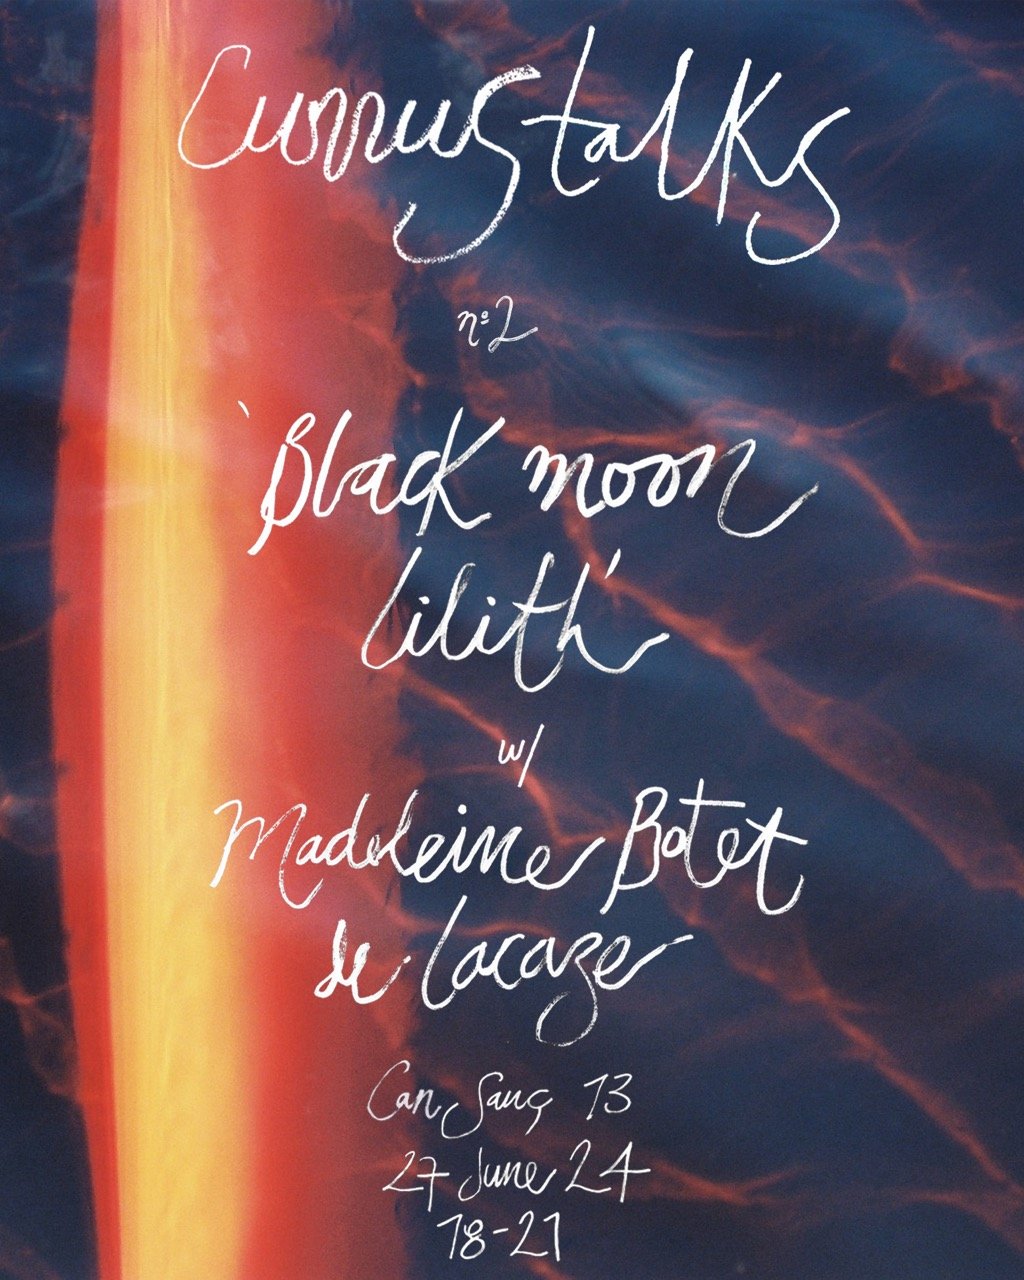 talks
nº2
'Black moon
lilith'
w/
Madeleine Botet
de Lacaze
Can Sanç 13
27 June 24
18-21